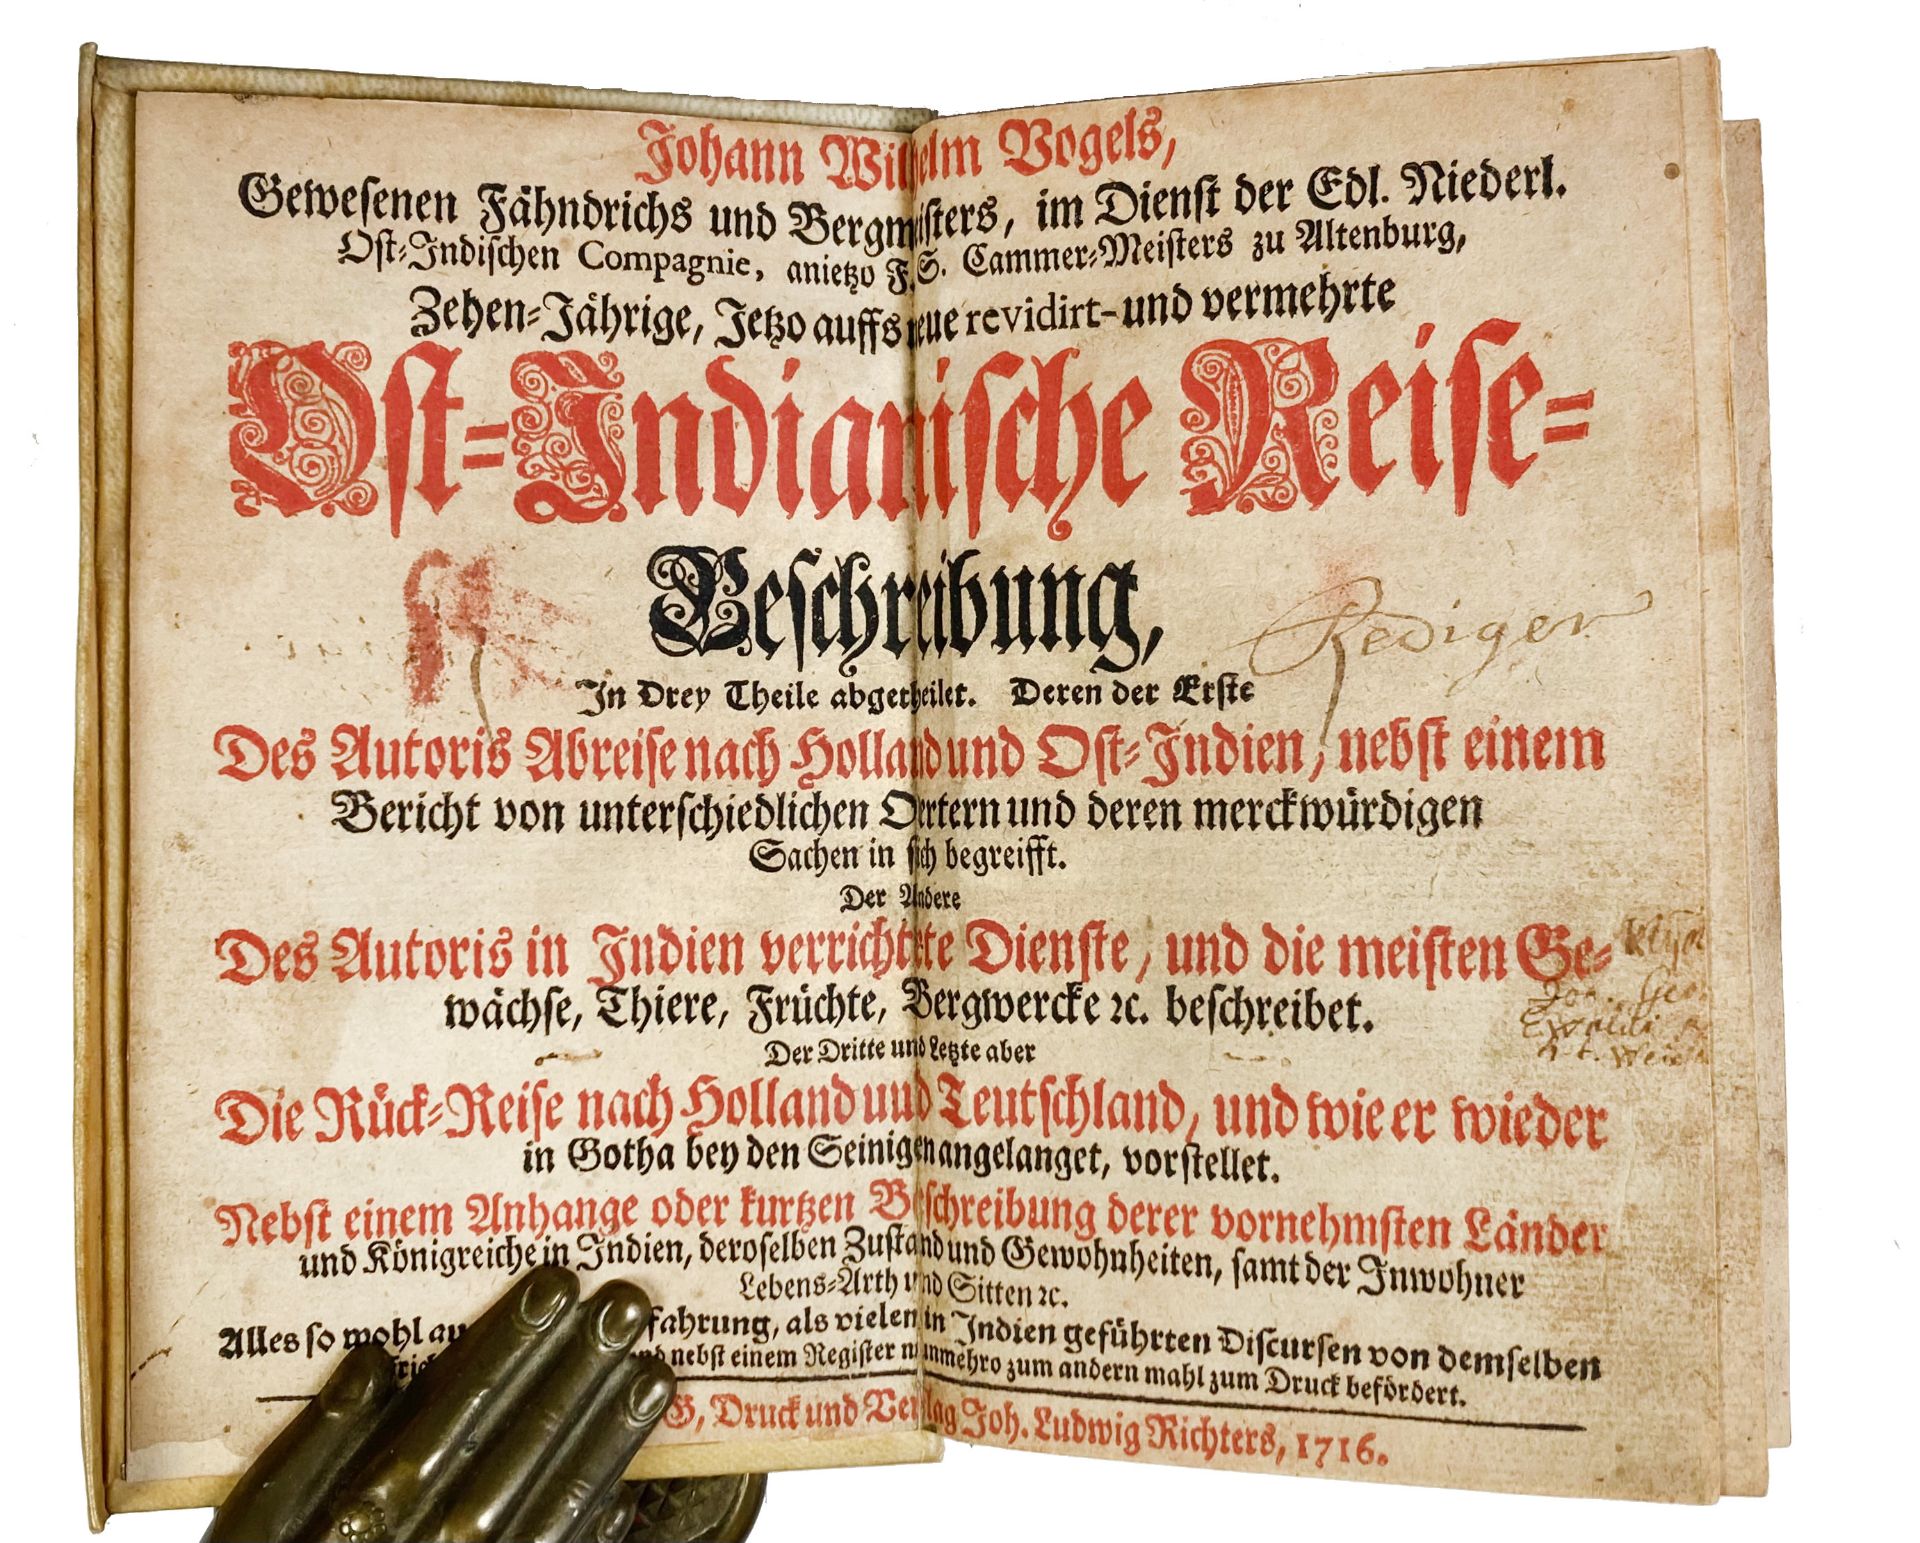 Johann Wilhelm Vogels,
Gewesenen Fähndrichs und Bergmeisters, im Dienst der Edl. Niederl.
Ost-Indischen Compagnie, anietzo F. S. Cammer-Meisters zu Altenburg,
Zehen-Jährige, Jetzo auffs neue revidirt- und vermehrte
Ost-Indianische Reise-
Beschreibung,
Rediger
In Drey Theile abgetheilet. Deren der Erste
Des Autoris Abreise nach Holland und Ost-Indien, nebst einem
Bericht von unterschiedlichen Oertern und deren merckwürdigen
Sachen in sich begreifft.
Der Andere
Des Autoris in Indien verrichtete Dienste, und die meisten Ge-
wächse, Thiere, Früchte, Bergwercke ꝛc. beschreibet.
Der Dritte und Letzte aber
Die Rück-Reise nach Holland und Teutschland, und wie er wieder
in Gotha bey den Seinigen angelanget, vorstellet.
Nebst einem Anhange oder kurtzen Beschreibung derer vornehmsten Länder
und Königreiche in Indien, deroselben Zustand und Gewohnheiten, samt der Inwohner
Lebens-Arth und Sitten ꝛc.
Alles so wohl fahrung, als vielen in Indien geführten Discursen von demselben
nebst einem Register nunmehro zum andern mahl zum Druck befördert.
G, Druck und Verlag Joh. Ludwig Richters, 1716.